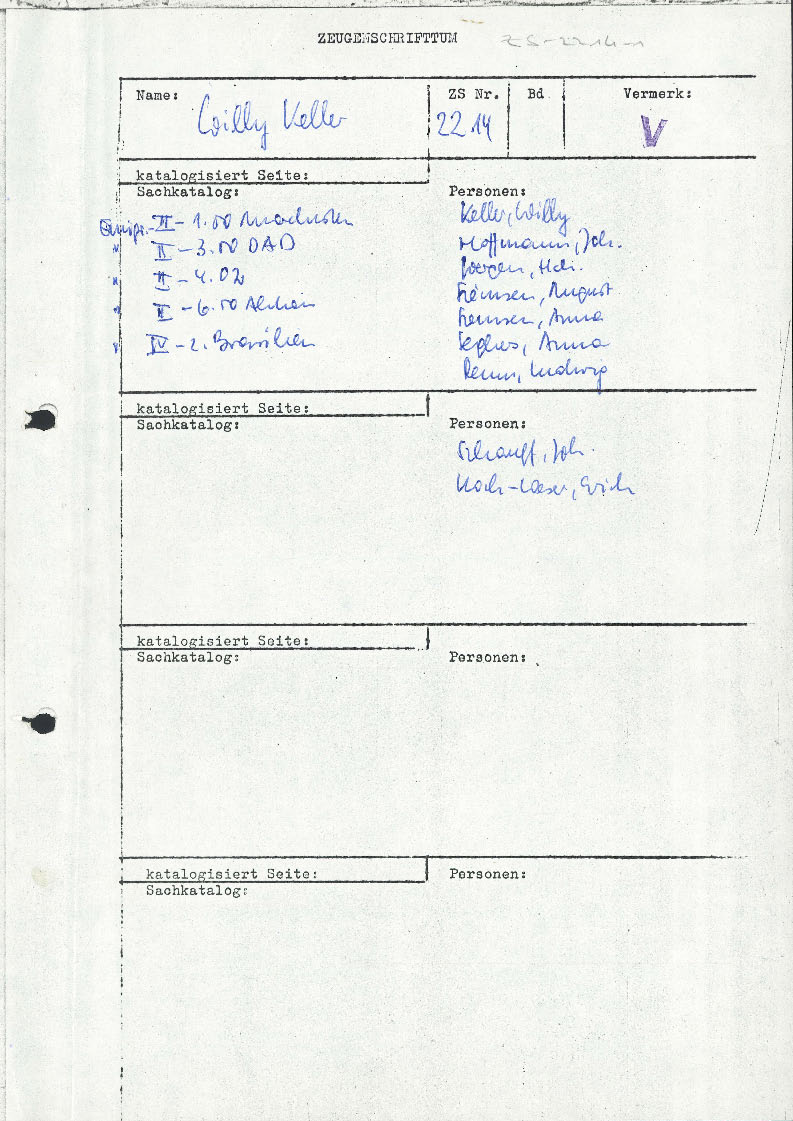 ZEUGENSCHRIFTTUM ZS-2214-1
Name: Willy Keller
ZS Nr. 2214
Bd
Vermerk: V
katalogisiert Seite:
Sachkatalog:
Personen:
II - 1.00
II - 3.00 DAD
II - 4.02
II - 6.00
IV - 2. Brasilien
Keller, Willy
Hoffmann, Joh.
Siemsen, August
Siemsen, Anna
Seghers, Anna
Renn, Ludwig
katalogisiert Seite:
Sachkatalog:
Personen:
Schauff, Joh.
Koch-Weser, Erich
katalogisiert Seite:
Sachkatalog:
Personen:
katalogisiert Seite:
Sachkatalog:
Personen: